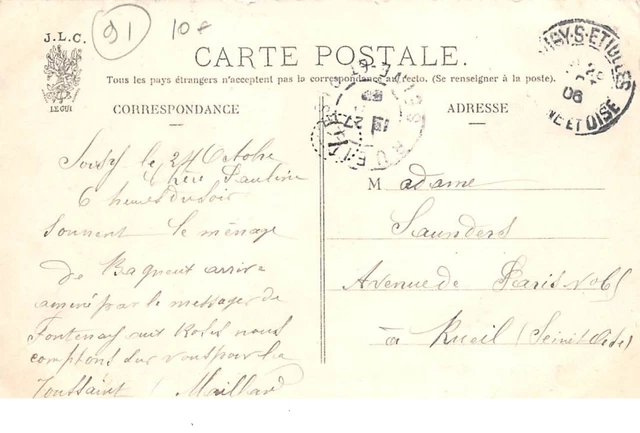 91 10f
J.L.C.
LE GUI
CARTE POSTALE.
Tous les pays étrangers n'acceptent pas la correspondance au recto. (Se renseigner à la poste).
CORRESPONDANCE
ADRESSE
ISY-S-ETIOLLES
06
NE ET OISE
RUEIL
le 24 Octobre
Chère Pauline
6 heures du soir
sonnent le ménage
De arrive
amené par le messager de
Fontenay aux Roses nous
comptons sur vous pour la
Toussaint Maillard
Madame
Saunders
Avenue de Paris
à Rueil (Seine et Oise)